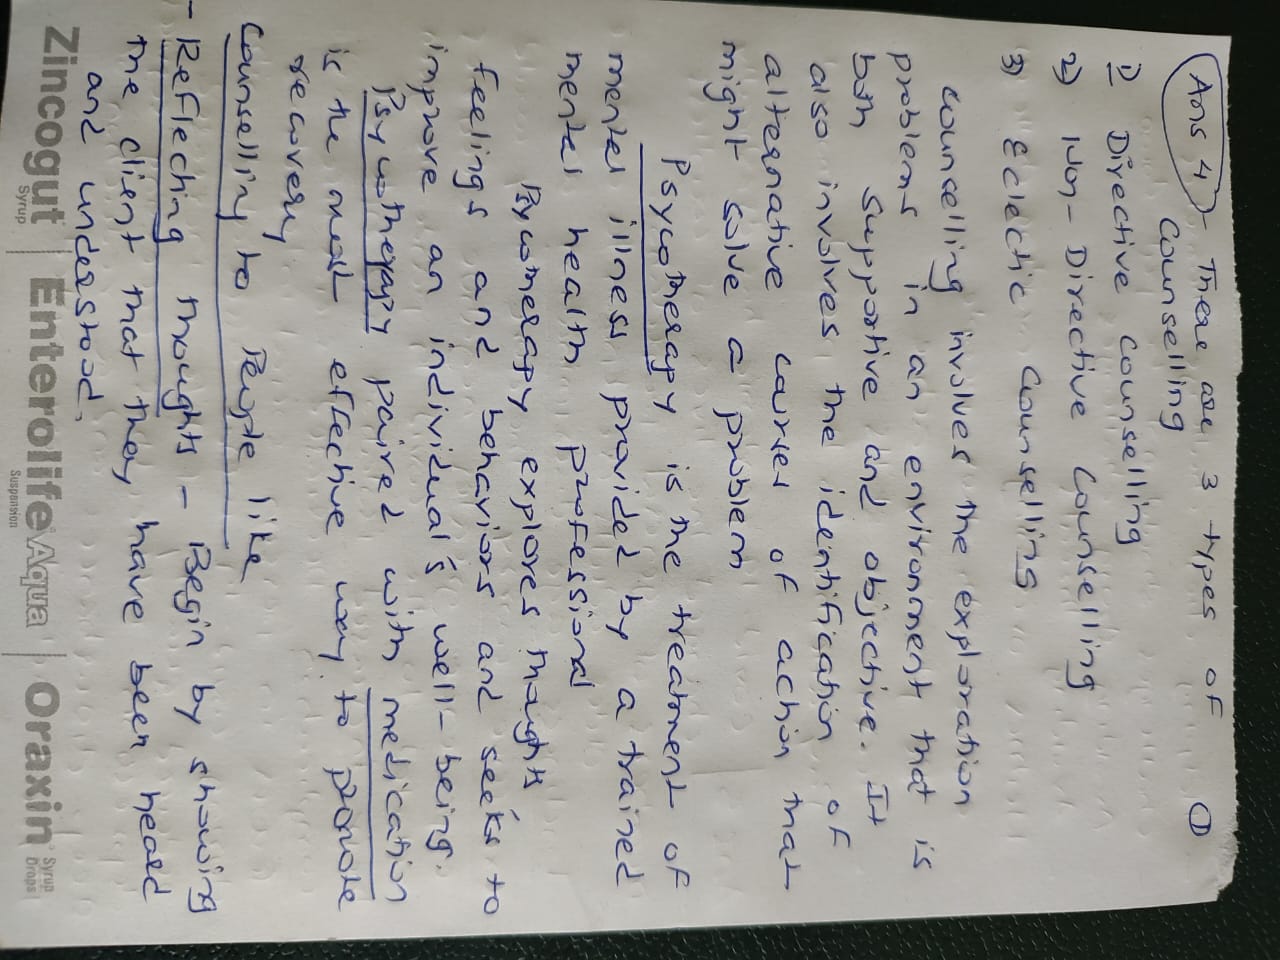 ①
Ans 4 - There are 3 types of
Counselling
1) Directive counselling
2) Non-Directive Counselling
3) Eclectic Counselling
Councelling involves the exploration
problems in an environment that is
both supportive and objective. It
also involves the identification of
alternative courses of action that
might solve a problem
Psycotherapy is the treatment of
mental illness provided by a trained
mental health professional
Psycotherapy explores thoughts
feelings and behaviors and seeks to
improve an individual's well-being.
Psycotherapy paired with medication
is the most effective way to pomote
recovery
Counselling to People like
- Reflecting thoughts - Begin by showing
the client that they have been heard
and understood.
Zincogut Syrup | Enterolife Aqua Suspension | Oraxin Syrup Drops